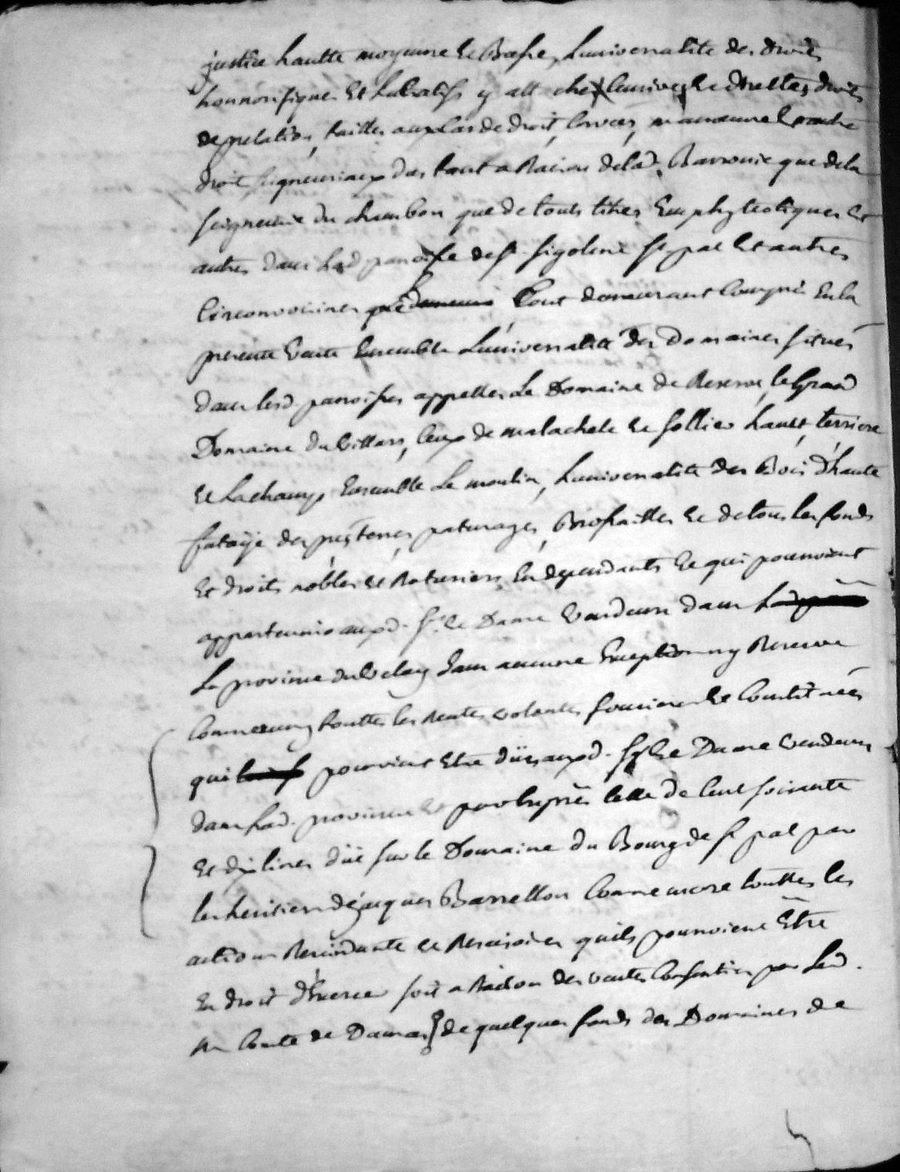 justice hautte moyenne et Basse, Luniversalité des droits
honnorifiques Et Lucratifs y attachés, cens, Directes, droits
de prelation, tailles aux cas de droit, Corvées, manoeuvre Et autre
droit seigneuriaux dus tant a Raison delad. Barronie que dela
seigneurie du chambon que de touts titres Emphyteotiques et
autres dans lad paroisse de st. sigoleine st pal Et autres
Circonvoisines Tout demeurant Compris En la
presente Vente Ensemble L'universalité des Domaines situés
dans lesd paroisses appelles Le Domaine de Reserve, le Grand
Domaine du Villars, Ceux de malachele et sollier, haut, terrisse
et Lachamp, Ensemble Le moulin, Luniversalité des Bois d'haute
futaÿe des prés, terres, paturages, Brossailles et de tous les fonds
Et droits nobles et Roturiers En dependants Et qui pouvoient
appartenir auxd. Sr. et Dame Vendeurs dans
La province du Velay sans aucune Exception ny Reserve
Comme aussy touttes les Rentes volantes foncieres Et Constituées
qui pourroient Etre düés auxd. Sr et Dame Vendeurs
dans lad. province Et par Exprès Celle de Cent soixante
Et dix livres düe sur le Domaine du Bourg de st pal par
les heritiers de Jaques Barrellon Comme encore touttes les
actions Rescindante et Rescisoires quils pourroient Être
En droit d'Exercer soit a Raison des ventes Consenties par Led.
sr Comte de Damas de quelques fonds des Domaines de